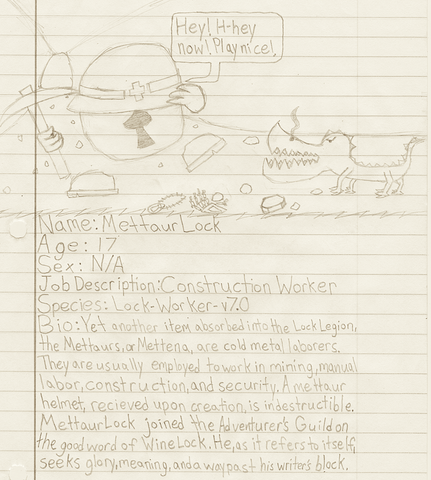 Hey! H-hey
now! Play nice!
Name: MettaurLock
Age: 17
Sex: N/A
Job Description: Construction Worker
Species: Lock-Worker-v7.0
Bio: Yet another item absorbed into the Lock Legion,
the Mettaurs, or Mettena, are cold metal laborers.
They are usually employed to work in mining, manual
labor, construction, and security. A mettaur
helmet, recieved upon creation, is indestructible.
MettaurLock joined the Adventurer's Guild on
the good word of WineLock. He, as it refers to itself,
seeks glory, meaning, and a way past his writer's block.